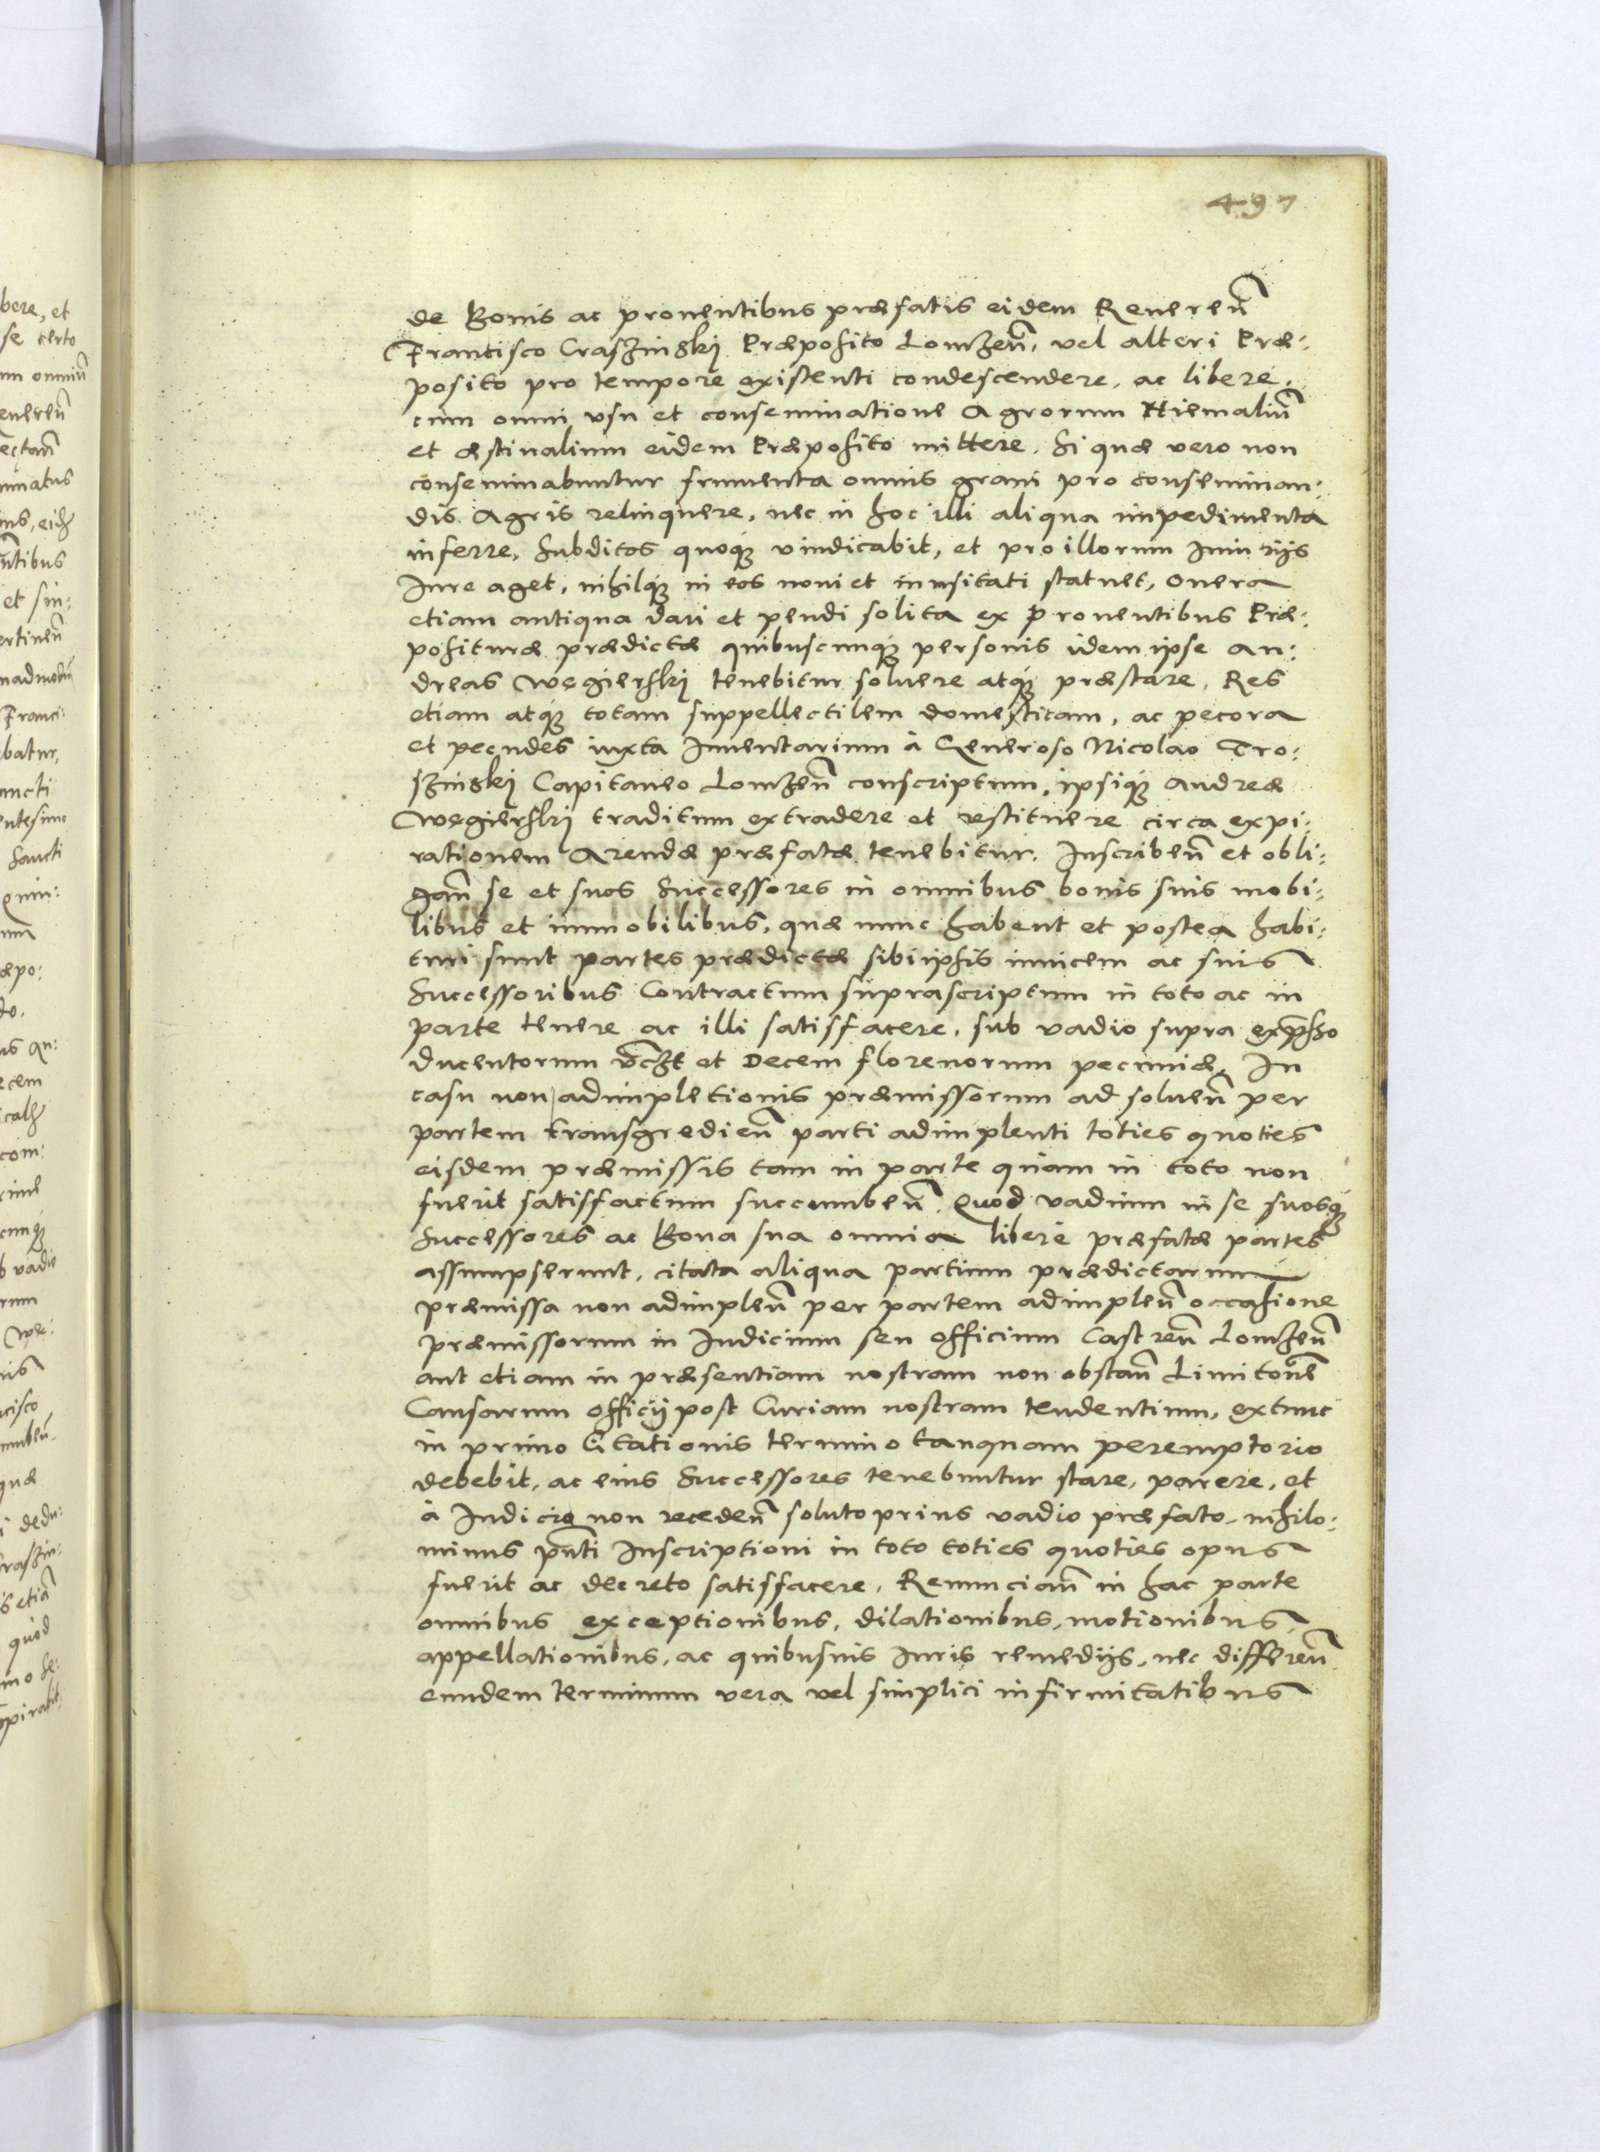 497
de Bonis ac prouentibus præfatis eidem Reueren̄
Francisco Craszinski Præposito Lomzen̄, vel alteri Præ:
posito pro tempore existenti condescendere, ac libere,
cum omni vsu et conseminatione Agrorum Hiemaliū
et æstiualium eidem Præposito mittere. Si quæ vero non
conseminabuntur frumenta omnis grani pro conseminan:
dis Agris relinquere, nec in hoc illi aliqua impedimenta
inferre, Subditos quoq3 vindicabit, et pro illorum Iniurijs
Iure aget, nihilq3 in eos noui et inusitati statuet, Onera
etiam antiqua dari et pendi solita ex prouentibus Præ:
posituræ prædictæ quibuscunq3 personis idem ipse An:
dreas Węgierski tenebitur soluere atq3 præstare, Res
etiam atq3 totam suppellectilem domesticam, ac pecora
et pecudes iuxta Inuentarium à Generoso Nicolao Tro:
szinski Capitaneo Lomzen̄ conscriptum, ipsiq3 Andreæ
Węgierski traditum extradere et restituere circa expi:
rationem Arendæ præfatæ tenebitur. Inscriben̄ et obli:
gan̄ se et suos Successores in omnibus bonis suis mobi:
libus et immobilibus, quæ nunc habent et postea habi:
turi sunt partes prædictæ sibiipsis inuicem ac suis
Successoribus Contractum suprascriptum in toto ac in
parte tenere ac illi satisfacere, sub vadio supra exp̄sso
ducentorum et Decem florenorum pecuniæ, In
casu non adimpletionis præmissorum ad soluen̄ per
partem transgredien̄ parti adimplenti toties quoties
eisdem præmissis tam in parte quam in toto non
fuerit satisfactum succumben̄. Quod vadium in se suosq3
Successores ac Bona sua omnia liberè præfatæ partes
assumpserunt, citata aliqua partium prædictarum
præmissa non adimplen̄ per partem adimplen̄ occasione
præmissorum in Iudicium seu Officium Castren̄ Lomzen̄
aut etiam in præsentiam nostram non obstan̄ Limitōne
Causarum Officij post Curiam nostram tendentium, extunc
in primo Citationis termino tanquam peremptorio
debebit, ac eius Successores tenebuntur stare, parere, et
à Iudicio non receden̄ soluto prius vadio præfato, nihilo:
minus pn̄ti Inscriptioni in toto toties quoties opus
fuerit ac decreto satisfacere, Renuncian̄ in hac parte
omnibus exceptionibus, dilationibus, motionibus,
appellationibus, ac quibusuis Iuris remedijs, nec differen̄
eundem terminum vera vel simplici infirmitatibus